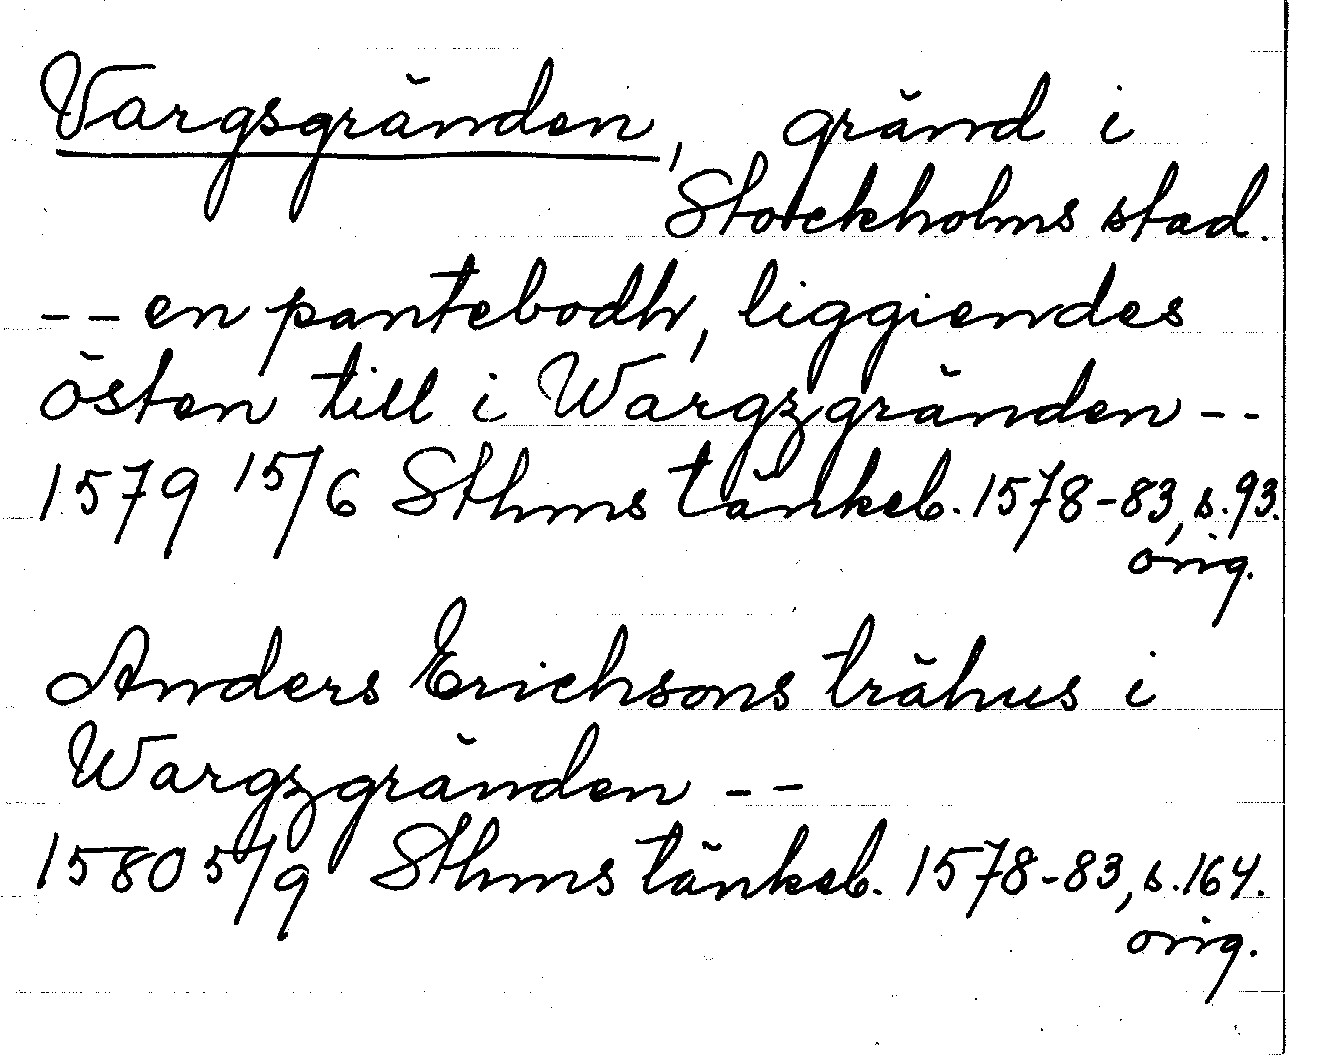 Vargsgränden, gränd i
Stockholms stad.
-- en pantebodh, liggiendes
östen till i Wargzgränden --
1579 15/6 Sthms tänkeb. 1578-83, s. 93.
orig.
Anders Erichsons trähus i
Wargzgränden --
1580 5/9 Sthms tänkeb. 1578-83, s. 164.
orig.